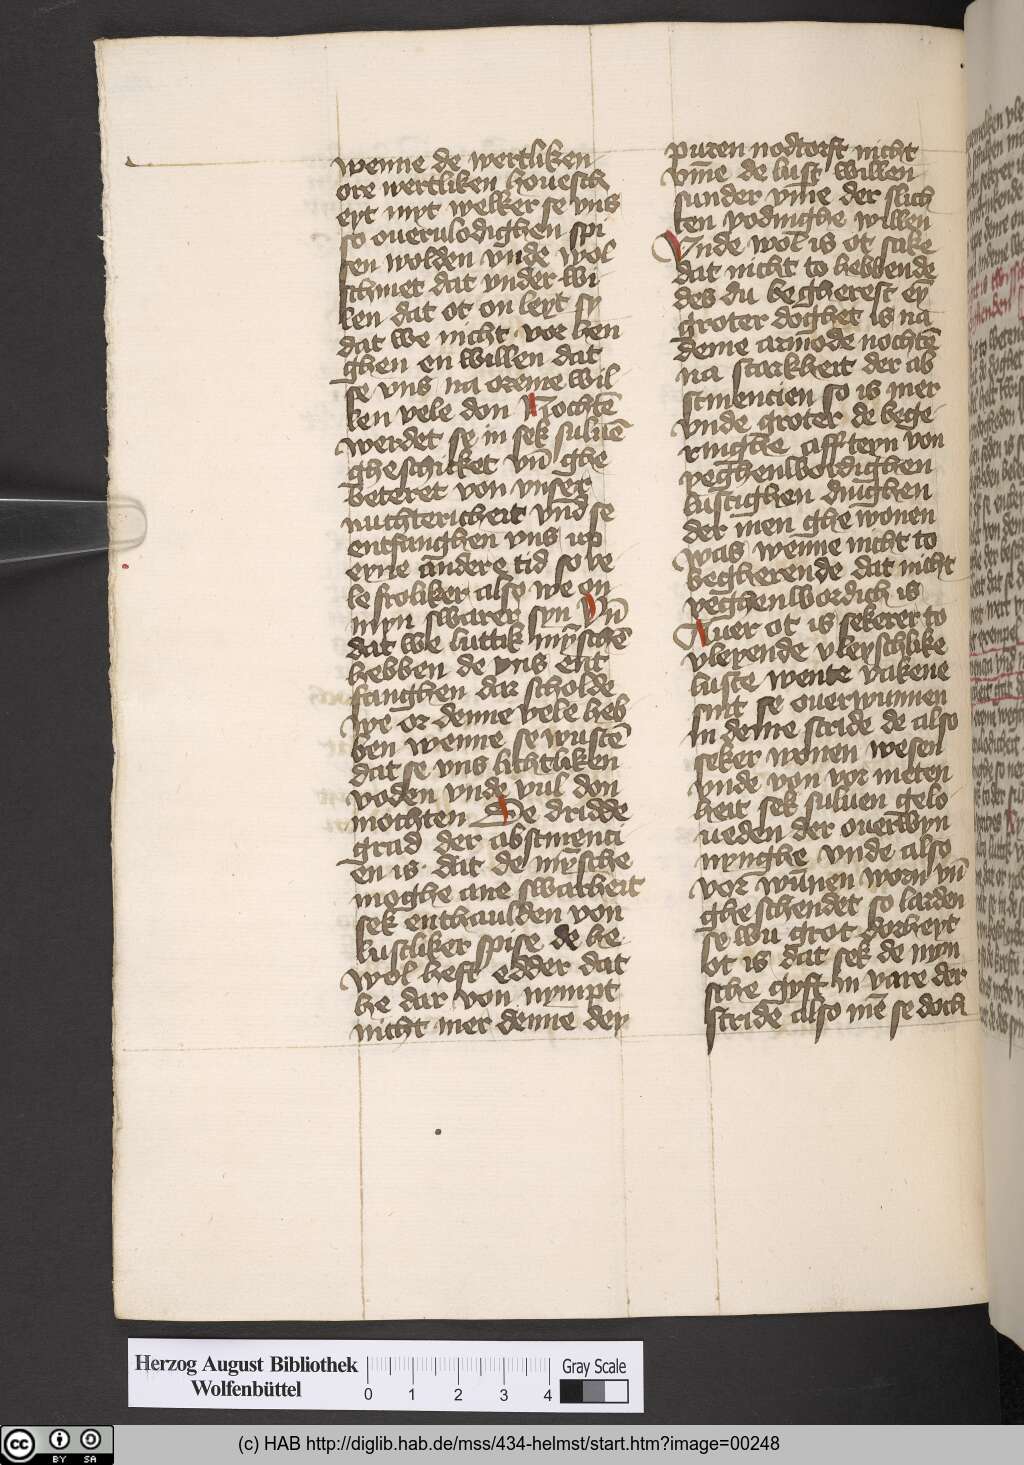 wenne de wertliken
ore wertliken houesch
eyt myt welker se vns
so ouervlodighen spi
sen wolden vnde wol
schmet dat vnder wi
len dat ot on leyt sy
dat we nicht vor ken
ghen en willen dat
se vns na oreme wil
len vele don Mochtē
werdet se in sek suluē
ghe schicket vn̄ ghe
beteret von vnser
nuchtericheit vnd se
entfanghen vns up
eyne andere tid so ve
le froliker also we on
myn swarer syn Vn̄
dat we luttik mȳschē
hebben de vns ent
fanghen dar scholde
we or denne vele heb
ben wenne se wustē
dat se vns lichtliken
voden vnde vul don
mochten De dridde
grad der abstinenci
en is dat de mȳsche
moghe ane swacheit
sek enthaulden von
lustliker spise de he
wol heft edder dat
he dar von nympt
nicht mer denne dey
puren nodtorft nicht
vm̄e de lust willen
sunder vm̄e der slich
ten vodinghe willen
Vnde wol is ot sake
dat nicht to hebbende
des du begherest eȳ
groter doghet is na
deme armode nochtē
na starkheit der ab
stinencien so is mer
vnde groter de bege
ringhe affteyn von
yeghenwordighen
lustighen dinghen
der men ghe wonen
was wenne nicht to
begherende dat nicht
yeghenwordich is
Auer ot is sekerer to
vleyende vleyschlike
luste wente vakene
sint se ouerwunnen
in deme stride de also
seker weren wesen
vnde von vor meten
heit sek suluen gelo
ueden der ouerwyn
nynghe vnde also
vor wūnen worn vn̄
ghe schendet so larden
se wu grot dorheyt
ot is dat sek de myn
sche gyft in vare der
stride also mē se doch
Herzog August Bibliothek
Wolfenbüttel
0 1 2 3 4
Gray Scale
(c) HAB http://diglib.hab.de/mss/434-helmst/start.htm?image=00248
cc BY SA